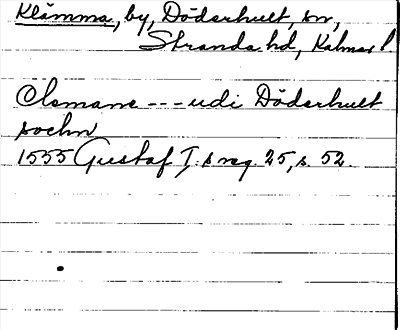 Klämma, by, Döderhult, sn,
Stranda hd, Kalmar l
Clemane --- udi Döderhult
sochn
1555 Gustaf I:s reg. 25, s. 52.